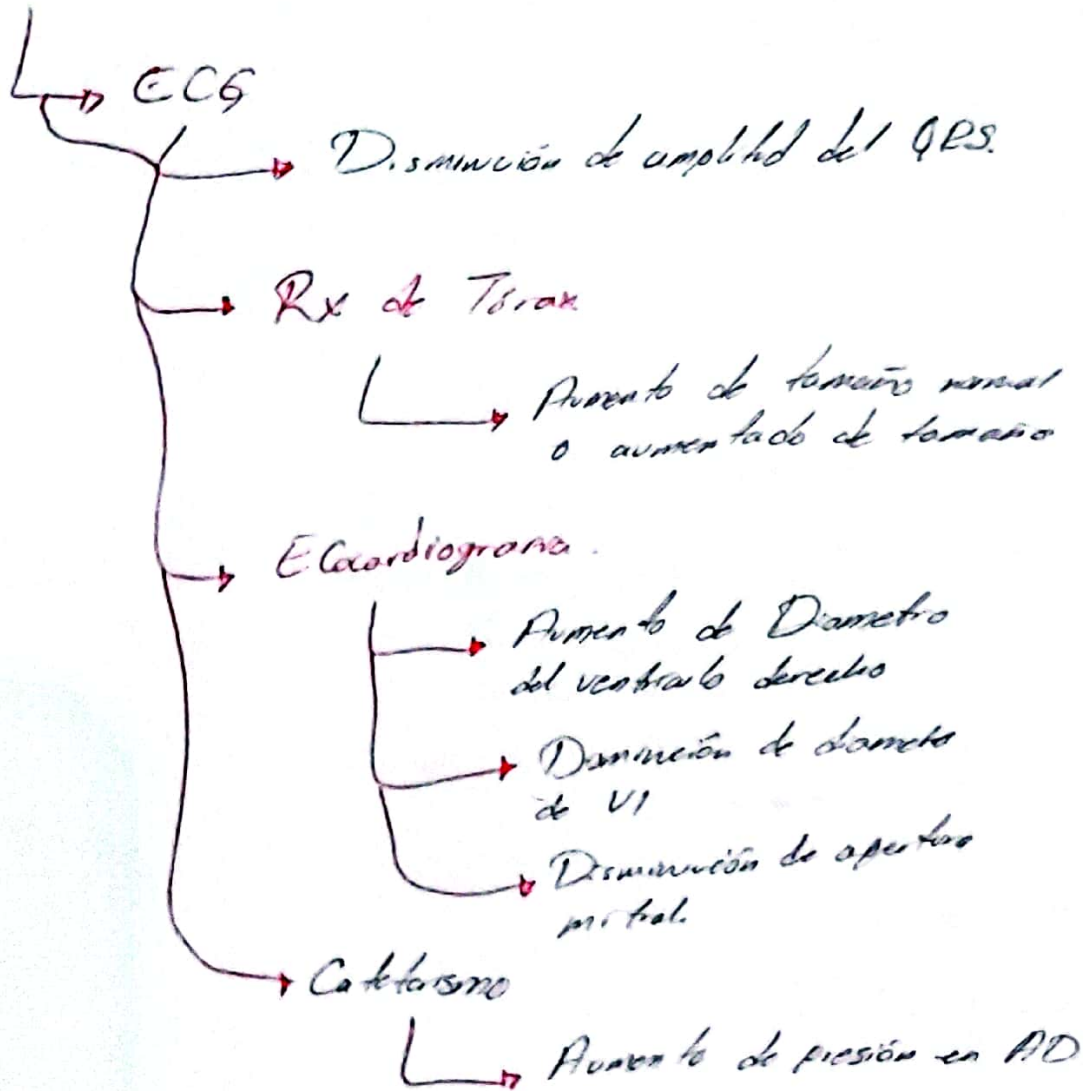 ECG
Disminución de amplitud del QRS.
Rx de Tórax
Aumento de tamaño normal
o aumentado de tamaño
ECocardiograma.
Aumento de Diametro
del ventriculo derecho
Disminución de diametro
de VI
Disminución de apertura
mitral.
Cateterismo
Aumento de presión en AD